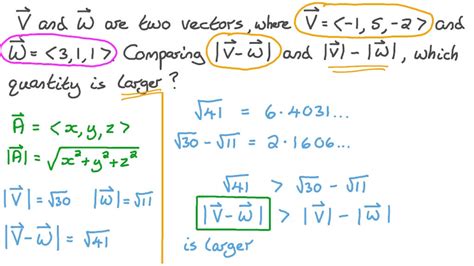 V⃗ and W⃗ are two vectors, where V⃗ = <-1, 5, -2> and
W⃗ = <3, 1, 1>. Comparing |V⃗-W⃗| and |V⃗| - |W⃗|, which
quantity is larger?
A⃗ = <x, y, z>
|A⃗| = √(x²+y²+z²)
|V⃗| = √30 |W⃗| = √11
|V⃗-W⃗| = √41
√41 = 6.4031...
√30 - √11 = 2.1606...
√41 > √30 - √11
|V⃗-W⃗| > |V⃗| - |W⃗|
is larger